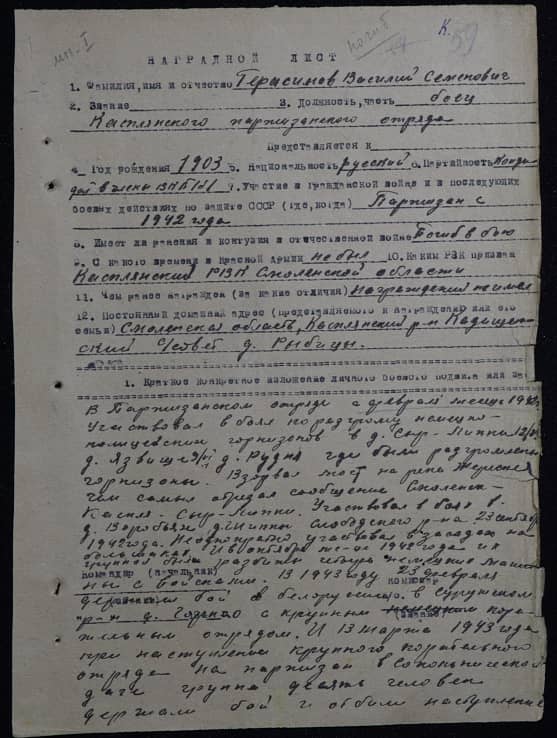 мн. I
погиб
К.
59
НАГРАДНОЙ ЛИСТ
1. Фамилия, имя и отчество Герасимов Василий Семенович
2. Звание 3. Должность, часть боец
Каспянского партизанского отряда
Представляется к
4. Год рождения 1903 5. Национальность русский 6. Партийность канди
дат в члены ВКП(б) 7. Участие в гражданской войне и в последующих
боевых действиях по защите СССР (где, когда) Партизан с
1942 года
8. Имеет ли ранения и контузии в отечественной войне Погиб в бою
9. С какого времени в Красной Армии не был 10. Каким РВК призван
Каспянский РВК Смоленской области
11. Чем ранее награжден (за какие отличия) награждений не имел
12. Постоянный домашний адрес (представляемого к награждению или его
семьи) Смоленская область, Каспянский р-н
ский с/совет д. Рыбицы.
1. Краткое конкретное изложение личного боевого подвига или зас
В Партизанском отряде с февраля месяца 1942
Участвовал в боях по разгрому немецко-
полицейских гарнизонов в д. Сыр-Липки
д. Язвище д. Рудня где были разгромлены
гарнизоны. Взорвал мост на реке Жереспея
чем самым сообщение Смоленск-
Каспля - Сыр-Липки. Участвовал в боях в
д. Воробьи Слободского р-на 23 сентября
1942 года. Неоднократно участвовал в засадах на
большаках. И в октябре м-це 1942 года их
группой были разбиты четыре немецкие маши
командир (начальник)
ны с войсками. В 1943 году 23 февраля
комиссар
держали бой в Белоруссии в Сурожском
р-н д. с крупным немецким кара
тельным отрядом. И 13 марта 1943 года
при наступлении крупного карательного
отряда на партизан в
даче группа десять человек
держали бой и отбили наступление